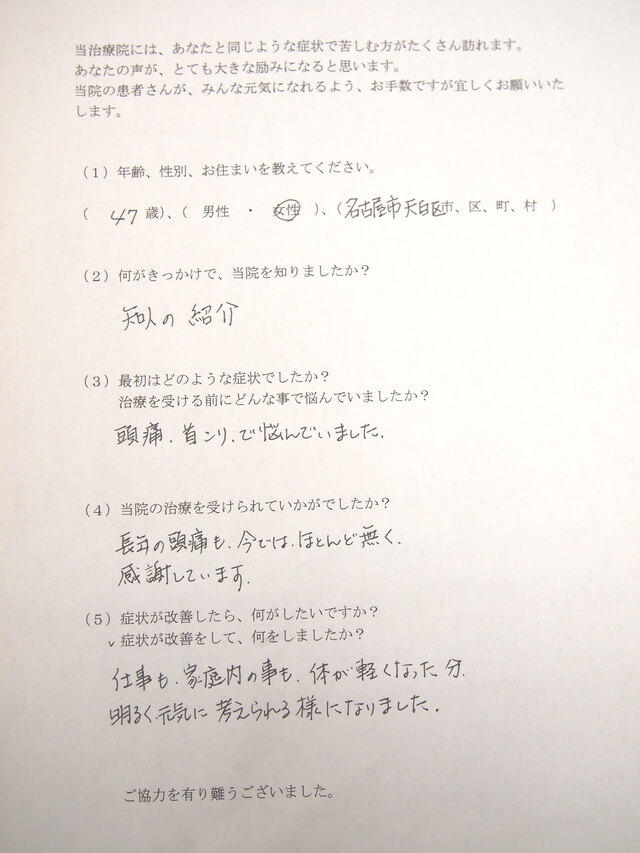 当治療院には、あなたと同じような症状で苦しむ方がたくさん訪れます。
あなたの声が、とても大きな励みになると思います。
当院の患者さんが、みんな元気になれるよう、お手数ですが宜しくお願いいた
します。
（1）年齢、性別、お住まいを教えてください。
（ 47 歳）、（ 男性 ・ 女性 ）、（名古屋市天白区市、区、町、村 ）
（2）何がきっかけで、当院を知りましたか？
知人の 紹介
（3）最初はどのような症状でしたか？
治療を受ける前にどんな事で悩んでいましたか？
頭痛、首コリ、で悩んでいました。
（4）当院の治療を受けられていかがでしたか？
長年の頭痛も、今では、ほとんど無く、
感謝しています。
（5）症状が改善したら、何がしたいですか？
v 症状が改善をして、何をしましたか？
仕事も、家庭内の事も、体が軽くなった分、
明るく元気に考えられる様になりました。
ご協力を有り難うございました。